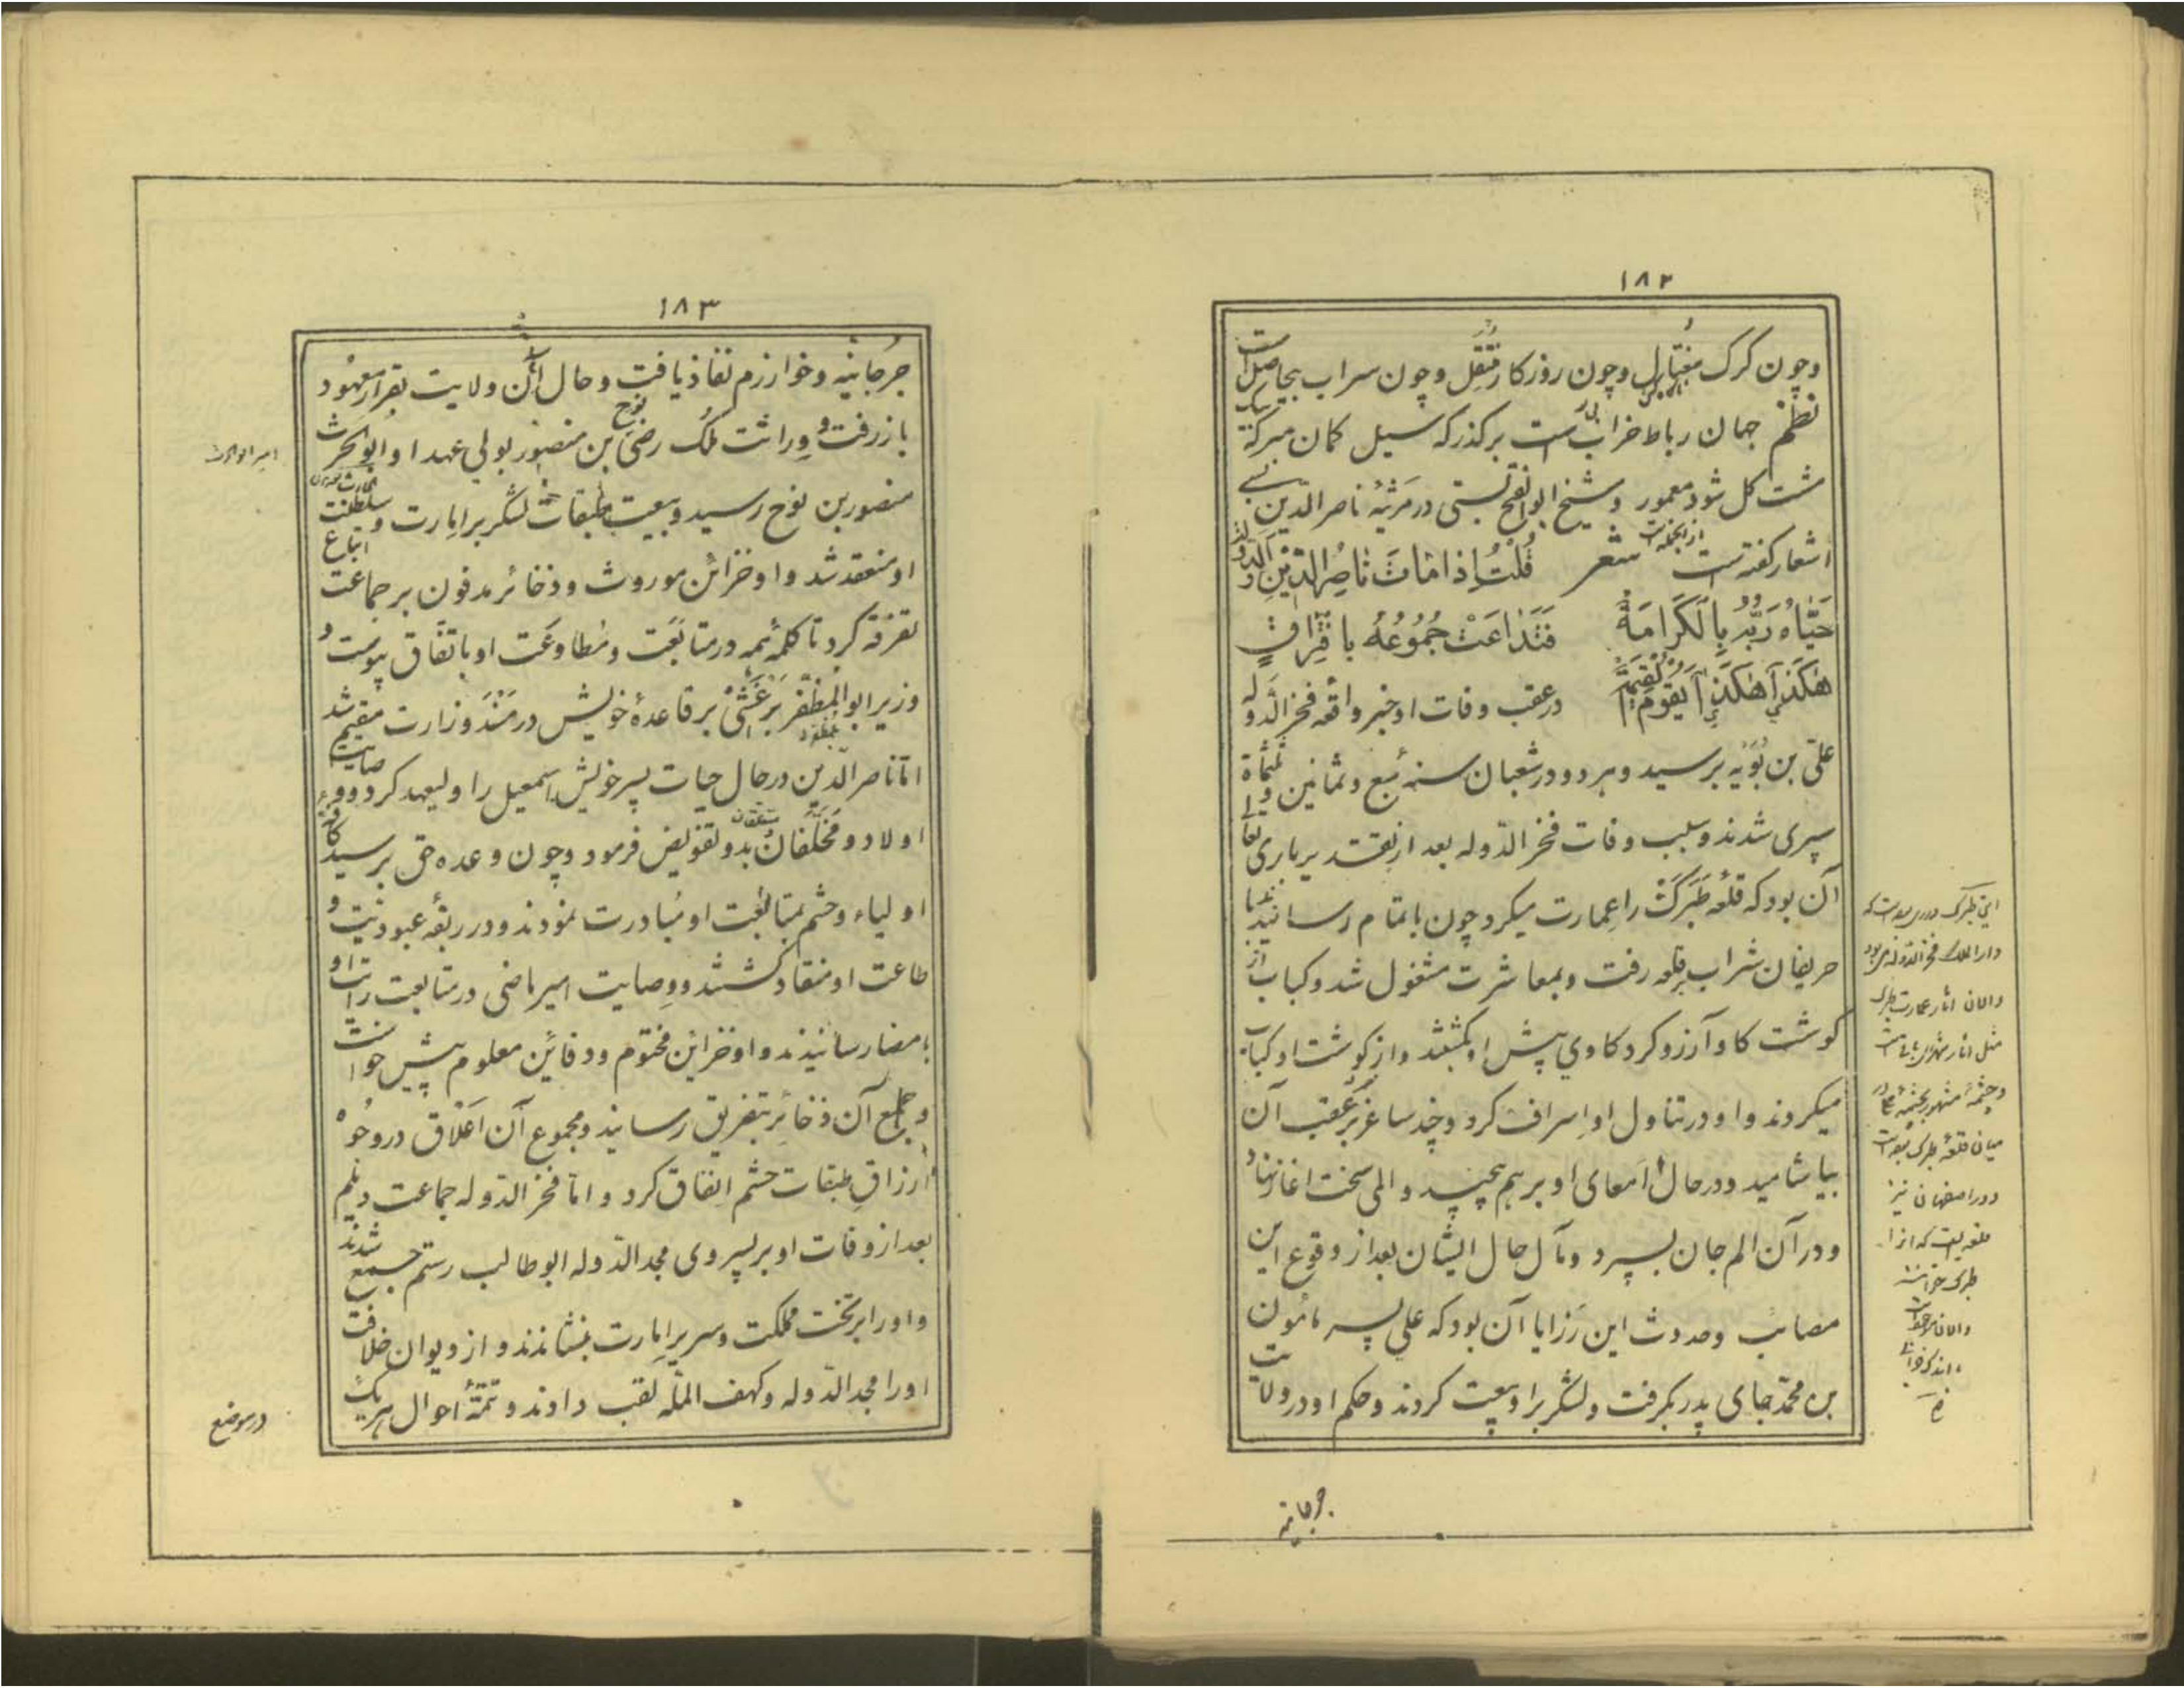 ١٨٢
وچون کرک مغتال وچون روزکار متقل وچون سراب بیحاصل است
نظم جهان رباط خرابیست برکذرکه سیل کمان مبرکه بیک
مشت کل شود معمور وشیخ ابوالفتح بستی در مرثیهٔ ناصر الدین بسی
اشعار کفته است ازانجمله است شعر قُلْتُ إِذا مٰاتَ نٰاصِرُ الدّینِ وَالدَّولَة
حَیّاهُ رَبُّهُ بِالْکَرٰامَةِ فَتَدٰاعَتْ جُمُوعُهُ بافْتِرٰاقٍ
هٰکَذیٰ هٰکَذیٰ تَقومُ الْقِیٰمَة درعقب وفات او خبر واقعه فخرالدوله
علی بن بُوَیه برسید وهر دو درشعبان سنه سبع وثمانین وثلثماة
سپری شدند وسبب وفات فخر الدوله بعد از تقدیر باری تعالی
آن بود که قلعه طَبَرَکْ را عمارت میکرد چون باتمام رسانید با
حریفان شراب بقلعه رفت وبمعاشرت مشغول شد وکباب از
کوشت کاو آرزو کرد کاوی پیش او بکشتند واز کوشت او کباب
میکردند واو درتناول او اسراف کرد وچند ساغر بر عقب آن
بیاشامید ودرحال امعای او برهم پیچید والمی سخت اغاز نهاد
ودر آن الم جان بسپرد ومآل حال ایشان بعد از وقوع این
مصائب وحدوث این رزایا آن بود که علی پسر مامون
بن محمد بجای پدر بکرفت ولشکر بر او بیعت کردند وحکم او در ولایت
جرجانیه
این طبرک در ری بوده است که
دارالملک فخرالدوله می بود
والان اثار عمارت طبرک
مثل اثار شهر ری باقی است
وچشمهٔ مشهور بچشمه علی در
میان قلعهٔ طبرک بوده است
ودر اصفهان نیز
قلعه ایست که انرا
طبرک خوانند
١٨٣
جرجانیه وخوارزم نفاذ یافت وحال آن ولایت بقرار معهود
باز رفت ووراثت ملک رضی نوح بن منصور بولی عهد او ابوالحرث
منصور بن نوح رسید وبیعت طبقات لشکر بر امارت وسلطنت
او منعقد شد واو خزائن موروث وذخائر مدفون بر جماعت اتباع
تفرقه کرد تا کلمهٔ همه درمتابعت ومطاوعت او باتفاق پیوست و
وزیر ابوالمظفر بَرْغَشی بر قاعدهٔ خویش در مسند وزارت مقیم شد
اما ناصر الدین درحال حیات پسر خویش اسمعیل را ولیعهد کرد ووصایت
اولاد ومخلّفان بدو تفویض فرمود وچون وعده حق برسید کافهٔ
اولیاء وحشم بمتابعت او مبادرت نمودند ودر ربقهٔ عبودیت و
طاعت او منقاد کشتند ووصایت امیر ماضی درمتابعت رایت او
بامضا رسانیدند واو خزاین مختوم ودفاین معلوم پیش خواست
وجمیع آن ذخائر بتفریق رسانید ومجموع آن اعلاق در وجوه
ارزاق طبقات حشم انفاق کرد واما فخر الدوله جماعت دیلم
بعد از وفات او بر پسر وی مجد الدوله ابو طالب رستم جمع شدند
واو را بر تخت مملکت وسریر امارت بنشاندند واز دیوان خلافت
او را مجد الدوله وکهف المله لقب دادند وتتمهٔ احوال هریک
درموضع